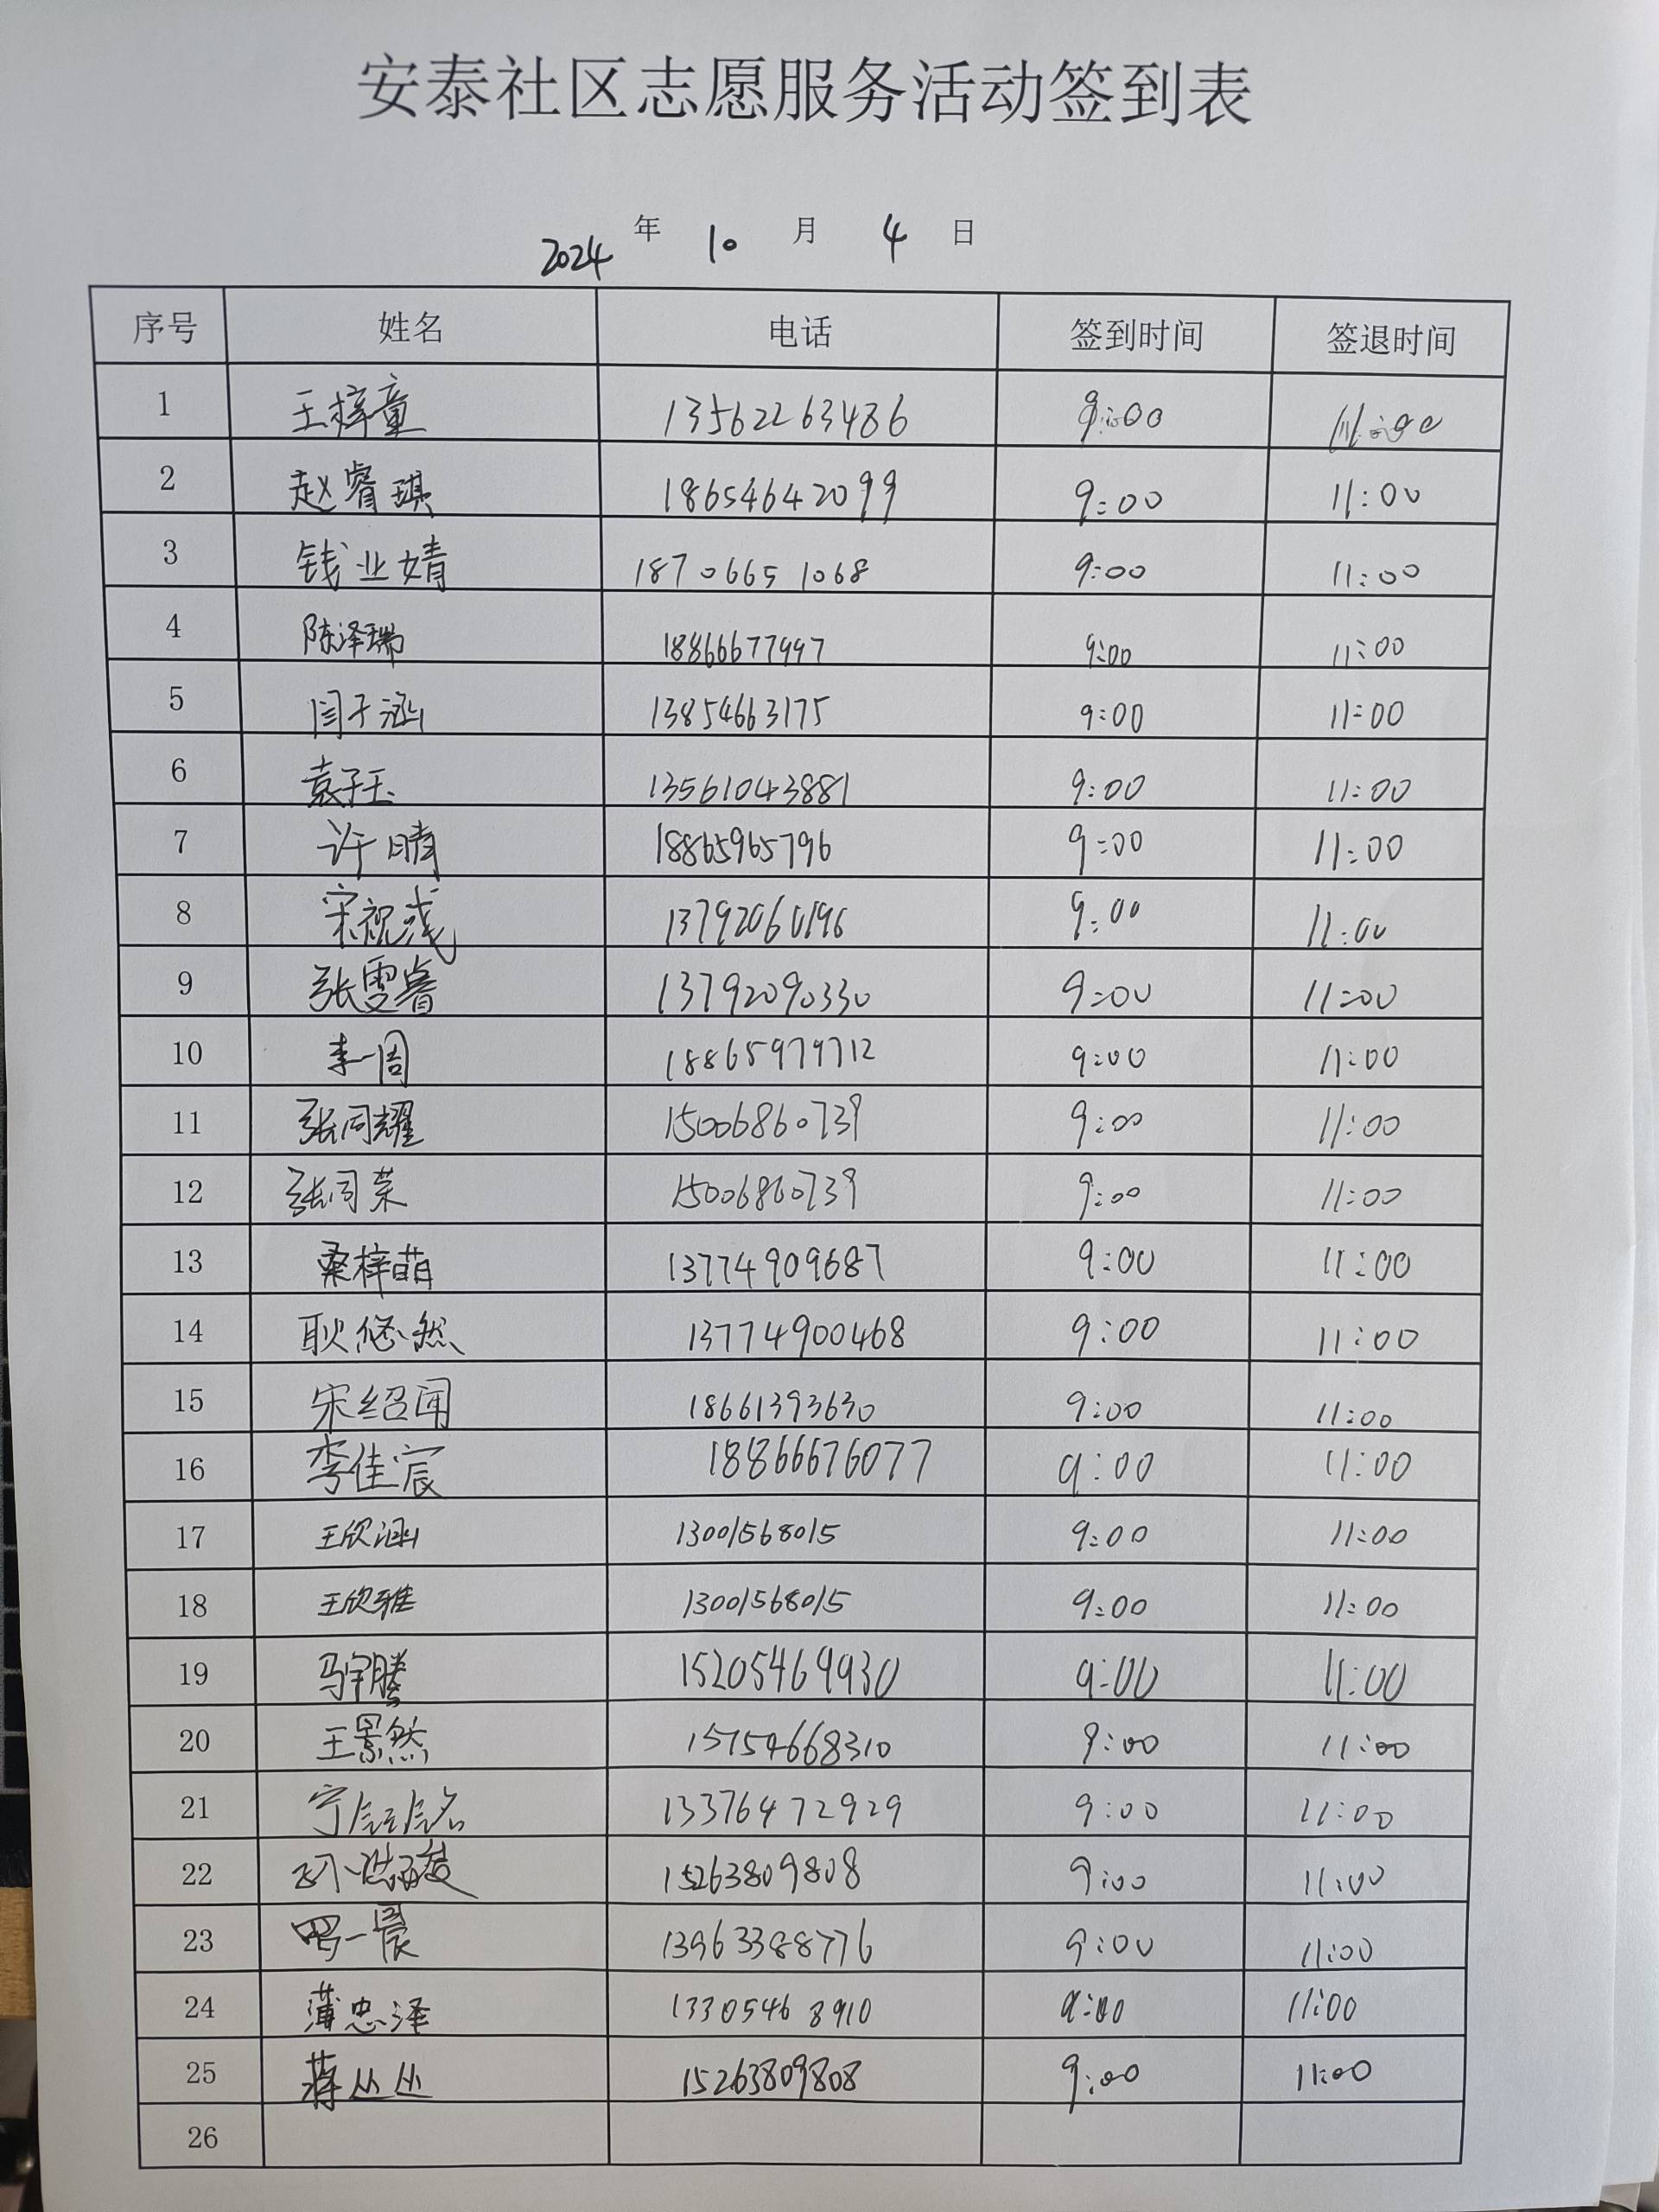 安泰社区志愿服务活动签到表
2024 年 10 月 4 日
序号 姓名 电话 签到时间 签退时间
1 王梓童 13562263486 9:00 11:00
2 赵睿琪 18654642099 9:00 11:00
3 钱业婧 18706651068 9:00 11:00
4 陈泽瑞 18866677997 9:00 11:00
5 闫子涵 13854663175 9:00 11:00
6 袁子玉 13561043881 9:00 11:00
7 许晴 18865965796 9:00 11:00
8 宋祝 13792060196 9:00 11:00
9 张雯睿 13792090330 9:00 11:00
10 李一周 18865979712 9:00 11:00
11 张同耀 15006860739 9:00 11:00
12 张同荣 15006860739 9:00 11:00
13 桑梓萌 13774909687 9:00 11:00
14 耿悠然 13774900468 9:00 11:00
15 宋绍闻 18661393630 9:00 11:00
16 李佳宸 18866676077 9:00 11:00
17 王欣涵 13001568015 9:00 11:00
18 王欣雅 13001568015 9:00 11:00
19 马宇腾 15205469930 9:00 11:00
20 王景然 15754668310 9:00 11:00
21 宁 13376472929 9:00 11:00
22 15263809808 9:00 11:00
23 罗一晨 13963388776 9:00 11:00
24 蒲忠泽 13305468910 9:00 11:00
25 蒋丛丛 15263809808 9:00 11:00
26